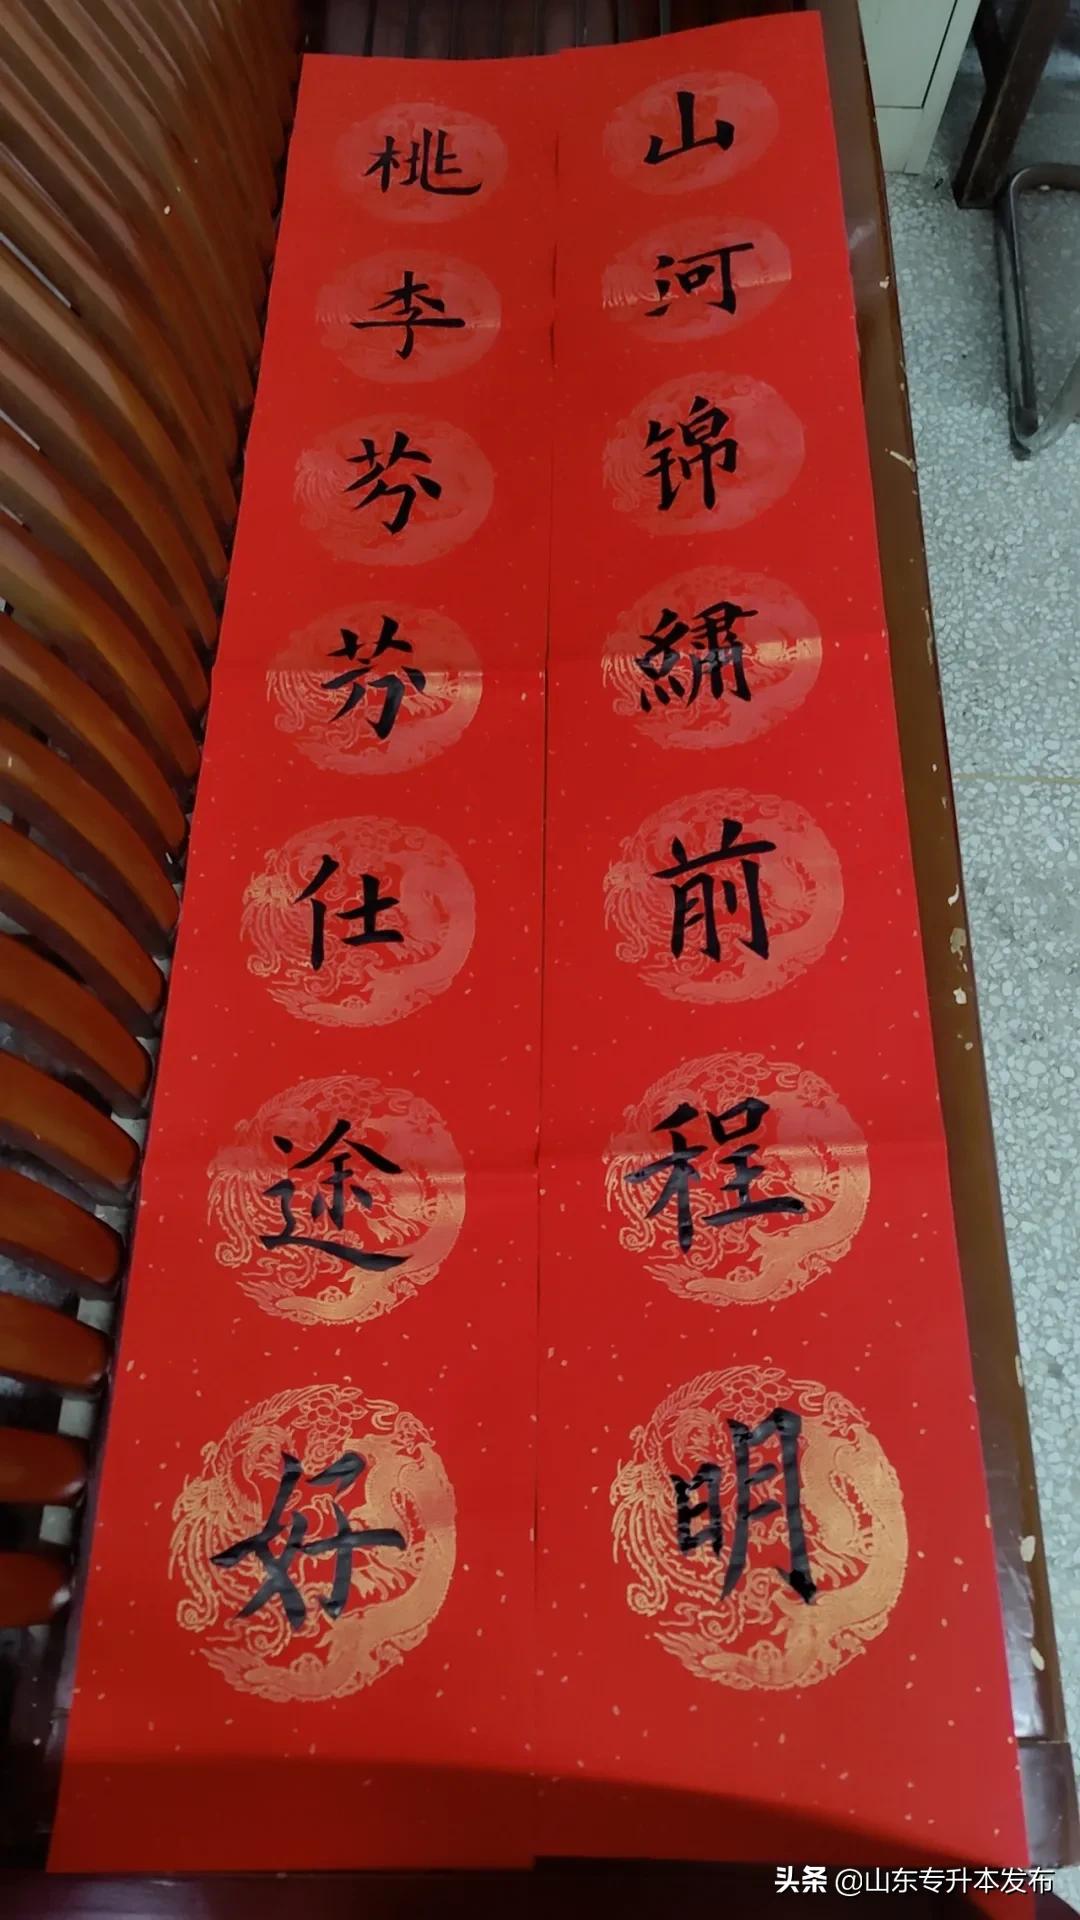 山河锦繡前程明
桃李芬芬仕途好
头条 @山东专升本发布